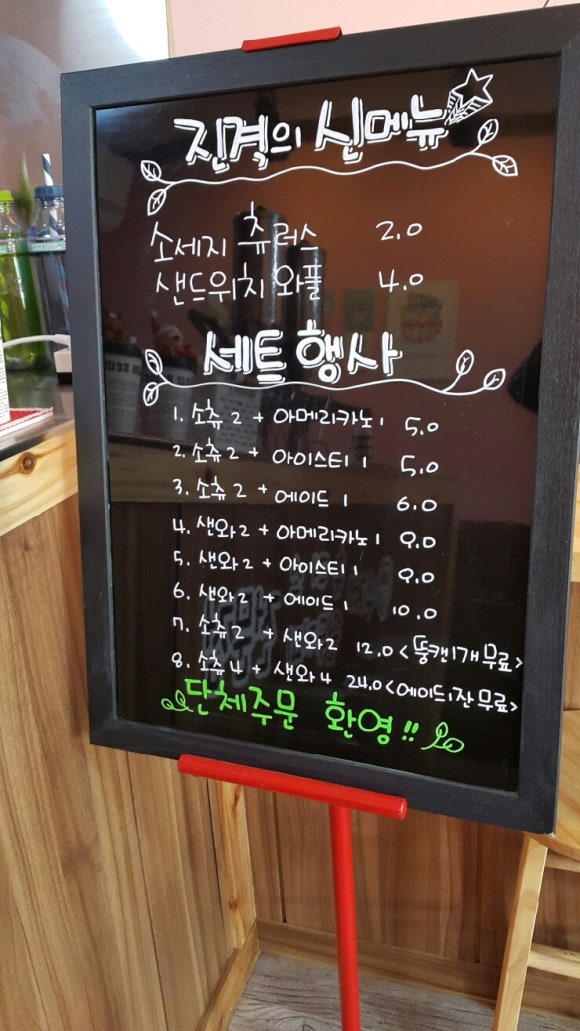 진격의 신메뉴
소세지 츄러스 2.0
샌드위치 와플 4.0
세트 행사
1. 소츄 2 + 아메리카노 1 5.0
2. 소츄 2 + 아이스티 1 5.0
3. 소츄 2 + 에이드 1 6.0
4. 샌와 2 + 아메리카노 1 9.0
5. 샌와 2 + 아이스티 1 9.0
6. 샌와 2 + 에이드 1 10.0
7. 소츄 2 + 샌와 2 12.0 <뚱캔 1개 무료>
8. 소츄 4 + 샌와 4 24.0 <에이드 1잔 무료>
단체주문 환영!!